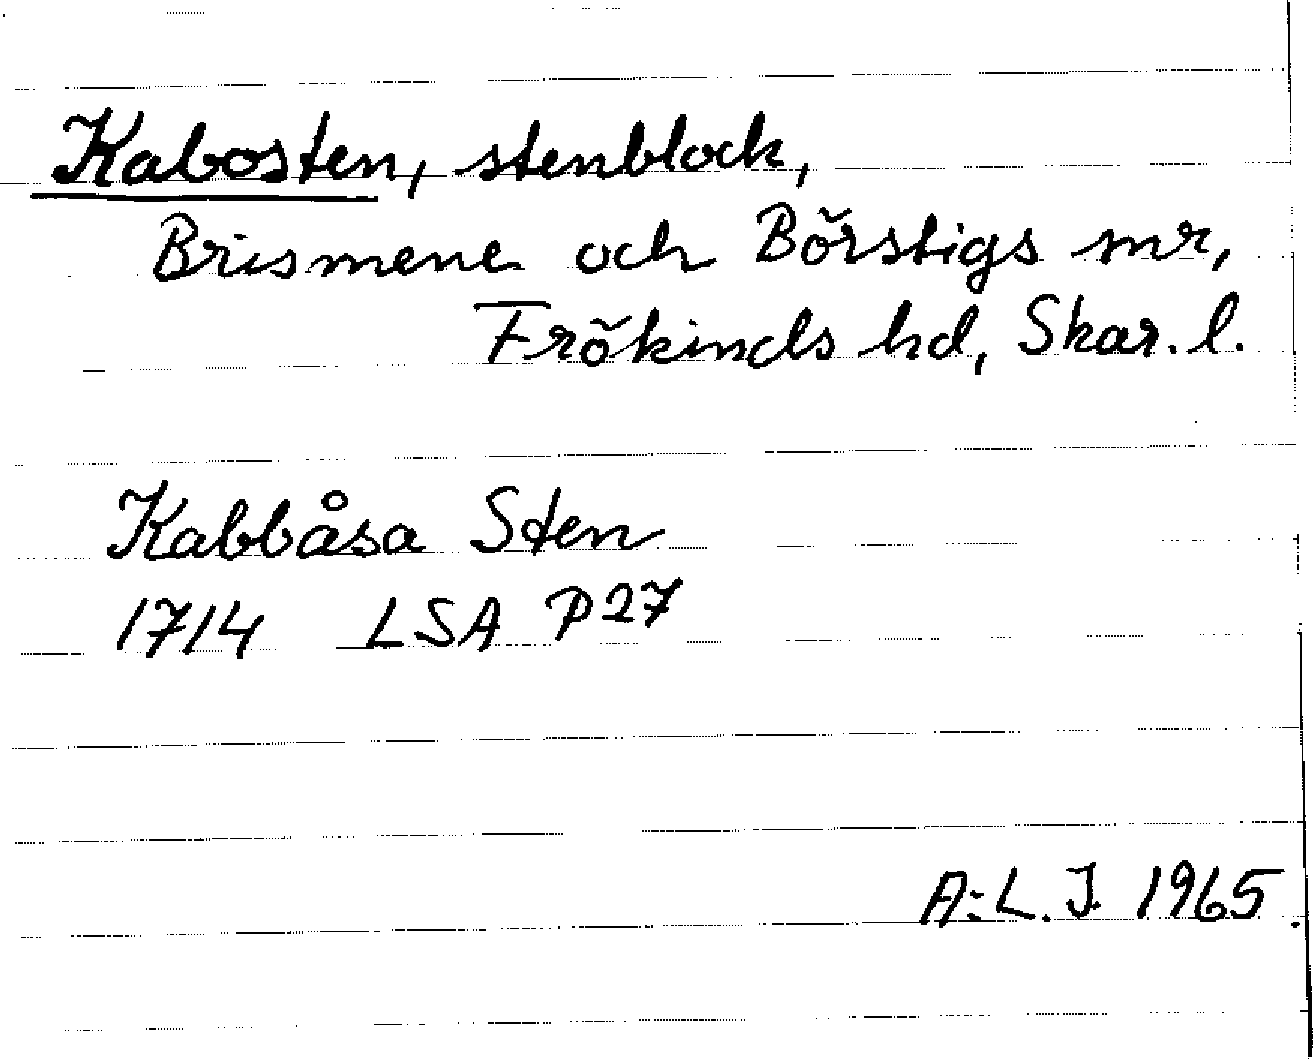 Kabosten, stenblock,
Brismene och Börstigs snr,
Frökinds hd, Skar. l.
Kabbåsa Sten
1714 LSA P27
A:L. J. 1965.